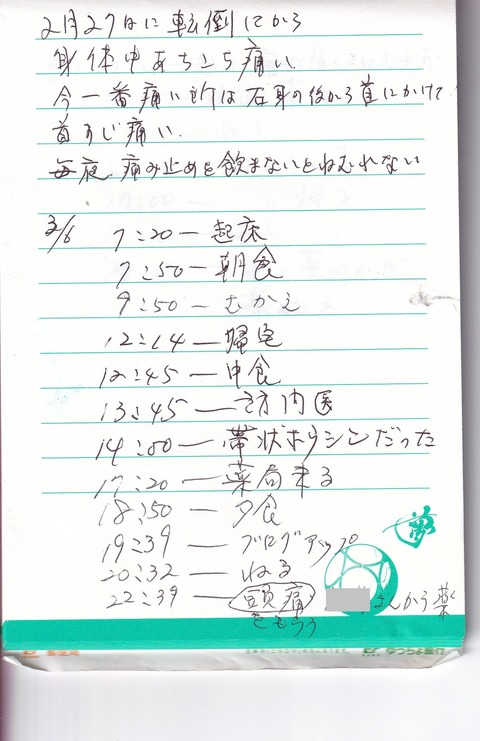 2月27日に転倒にから
身体中あちこち痛い
今一番痛い所は右身の後から首にかけて
首すじ痛い.
毎夜、痛み止めを飲まないとねむれない
3/6 7:20ー起床
7:50ー朝食
9:50ーむかえ
12:14ー帰宅
12:45ー中食
13:45ー訪内医
14:00ー帯状ホウシンだった
17:20ー薬局来る
18:50ー夕食
19:39ーブログアップ
20:32ーねる
22:39ー頭痛 さんから薬
をもらう
夢